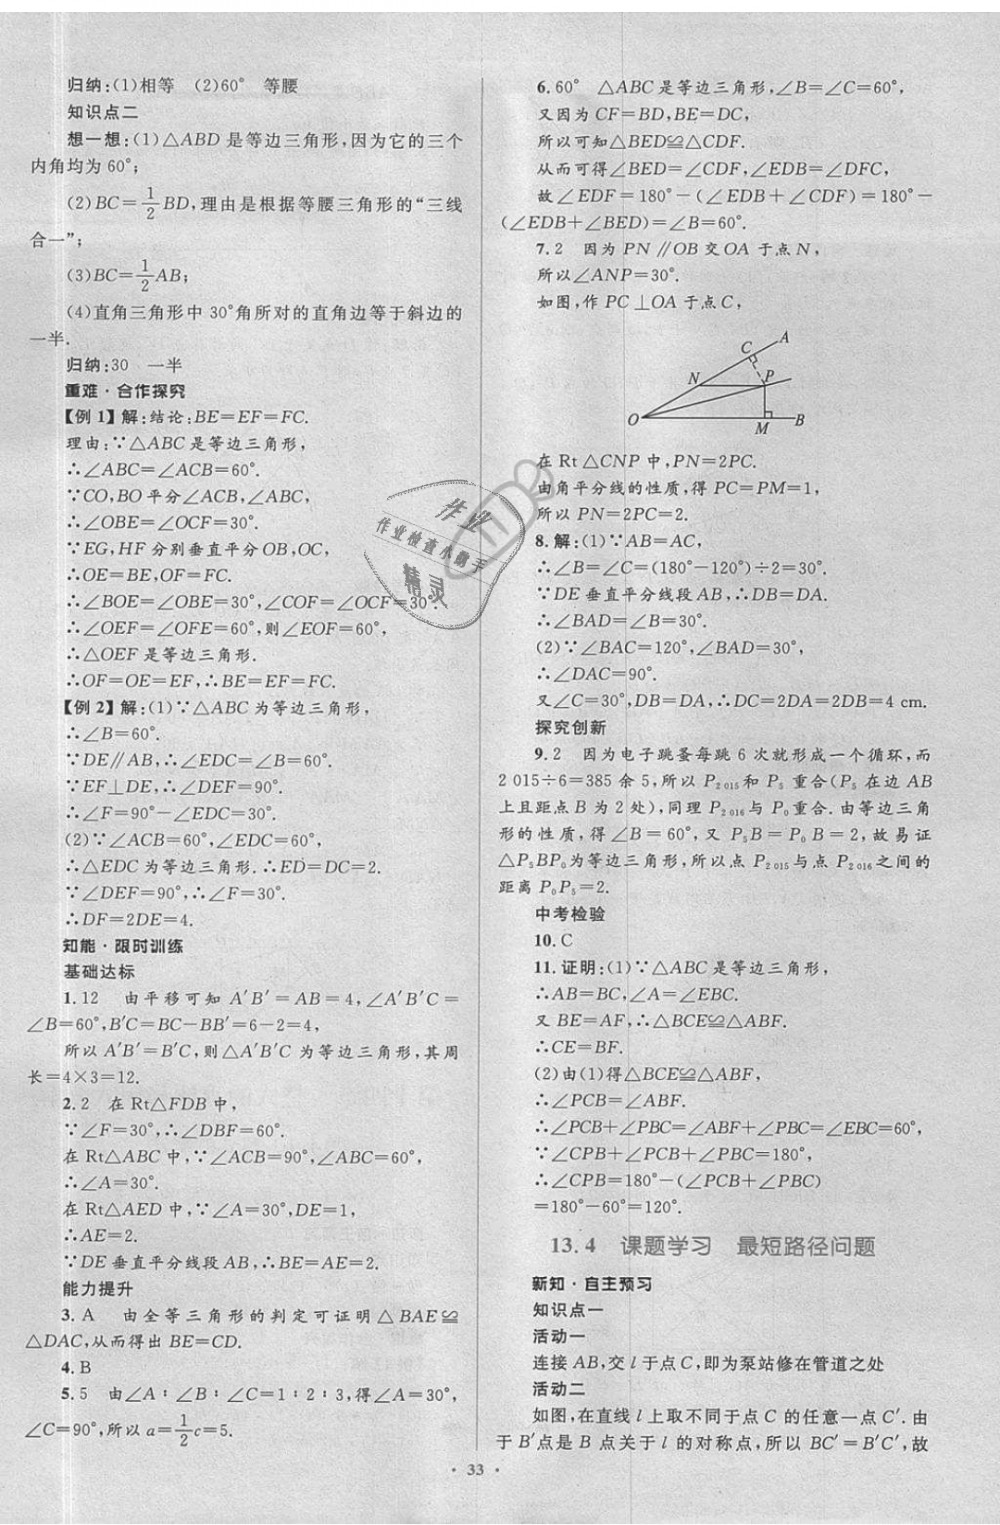 归纳:(1)相等　(2)60°　等腰
知识点二
想一想:(1)△ABD是等边三角形,因为它的三个
内角均为60°;
(2)BC=1/2BD,理由是根据等腰三角形的“三线
合一”;
(3)BC=1/2AB;
(4)直角三角形中30°角所对的直角边等于斜边的
一半.
归纳:30　一半
重难·合作探究
【例1】解:结论:BE=EF=FC.
理由:∵△ABC是等边三角形,
∴∠ABC=∠ACB=60°.
∵CO,BO平分∠ACB,∠ABC,
∴∠OBE=∠OCF=30°.
∵EG,HF分别垂直平分OB,OC,
∴OE=BE,OF=FC.
∴∠BOE=∠OBE=30°,∠COF=∠OCF=30°.
∴∠OEF=∠OFE=60°,则∠EOF=60°.
∴△OEF是等边三角形.
∴OF=OE=EF,∴BE=EF=FC.
【例2】解:(1)∵△ABC为等边三角形,
∴∠B=60°.
∵DE∥AB,∴∠EDC=∠B=60°.
∵EF⊥DE,∴∠DEF=90°,
∴∠F=90°-∠EDC=30°.
(2)∵∠ACB=60°,∠EDC=60°,
∴△EDC为等边三角形.∴ED=DC=2.
∵∠DEF=90°,∠F=30°.
∴DF=2DE=4.
知能·限时训练
基础达标
1.12　由平移可知A′B′=AB=4,∠A′B′C=
∠B=60°,B′C=BC-BB′=6-2=4,
所以A′B′=B′C,则△A′B′C为等边三角形,其周
长=4×3=12.
2.2　在Rt△FDB中,
∵∠F=30°,∴∠DBF=60°.
在Rt△ABC中,∵∠ACB=90°,∠ABC=60°,
∴∠A=30°.
在Rt△AED中,∵∠A=30°,DE=1,
∴AE=2.
∵DE垂直平分AB,∴BE=AE=2.
能力提升
3.A　由全等三角形的判定可证明△BAE≌
△DAC,从而得出BE=CD.
4.B
5.5　由∠A∶∠B∶∠C=1∶2∶3,得∠A=30°,
∠C=90°,所以a=1/2c=5.
6.60°　△ABC是等边三角形,∠B=∠C=60°,
又因为CF=BD,BE=DC,
所以可知△BED≌△CDF.
从而可得∠BED=∠CDF,∠EDB=∠DFC,
故∠EDF=180°-(∠EDB+∠CDF)=180°-
(∠EDB+∠BED)=∠B=60°.
7.2　因为PN∥OB交OA于点N,
所以∠ANP=30°.
如图,作PC⊥OA于点C,
A
C
N
P
O
M
B
在Rt△CNP中,PN=2PC.
由角平分线的性质,得PC=PM=1,
所以PN=2PC=2.
8.解:(1)∵AB=AC,
∴∠B=∠C=(180°-120°)÷2=30°.
∵DE垂直平分线段AB,∴DB=DA.
∴∠BAD=∠B=30°.
(2)∵∠BAC=120°,∠BAD=30°,
∴∠DAC=90°.
又∠C=30°,DB=DA,∴DC=2DA=2DB=4 cm.
探究创新
9.2　因为电子跳蚤每跳6次就形成一个循环,而
2 015÷6=385余5,所以P₂₀₁₅和P₅重合(P₅在边AB
上且距点B为2处),同理P₂₀₁₆与P₀重合.由等边三角
形的性质,得∠B=60°,又P₅B=P₀B=2,故易证
△P₅BP₀为等边三角形,所以点P₂₀₁₅与点P₂₀₁₆之间的
距离P₀P₅=2.
中考检验
10.C
11.证明:(1)∵△ABC是等边三角形,
∴AB=BC,∠A=∠EBC.
又BE=AF,∴△BCE≌△ABF.
∴CE=BF.
(2)由(1)得△BCE≌△ABF,
∴∠PCB=∠ABF.
∴∠PCB+∠PBC=∠ABF+∠PBC=∠EBC=60°,
∵∠CPB+∠PCB+∠PBC=180°,
∴∠CPB=180°-(∠PCB+∠PBC)
=180°-60°=120°.
13.4　课题学习　最短路径问题
新知·自主预习
知识点一
活动一
连接AB,交l于点C,即为泵站修在管道之处
活动二
如图,在直线l上取不同于点C的任意一点C′.由
于B′点是B点关于l的对称点,所以BC′=B′C′,故
作业
作业检查小帮手
精灵
·33·